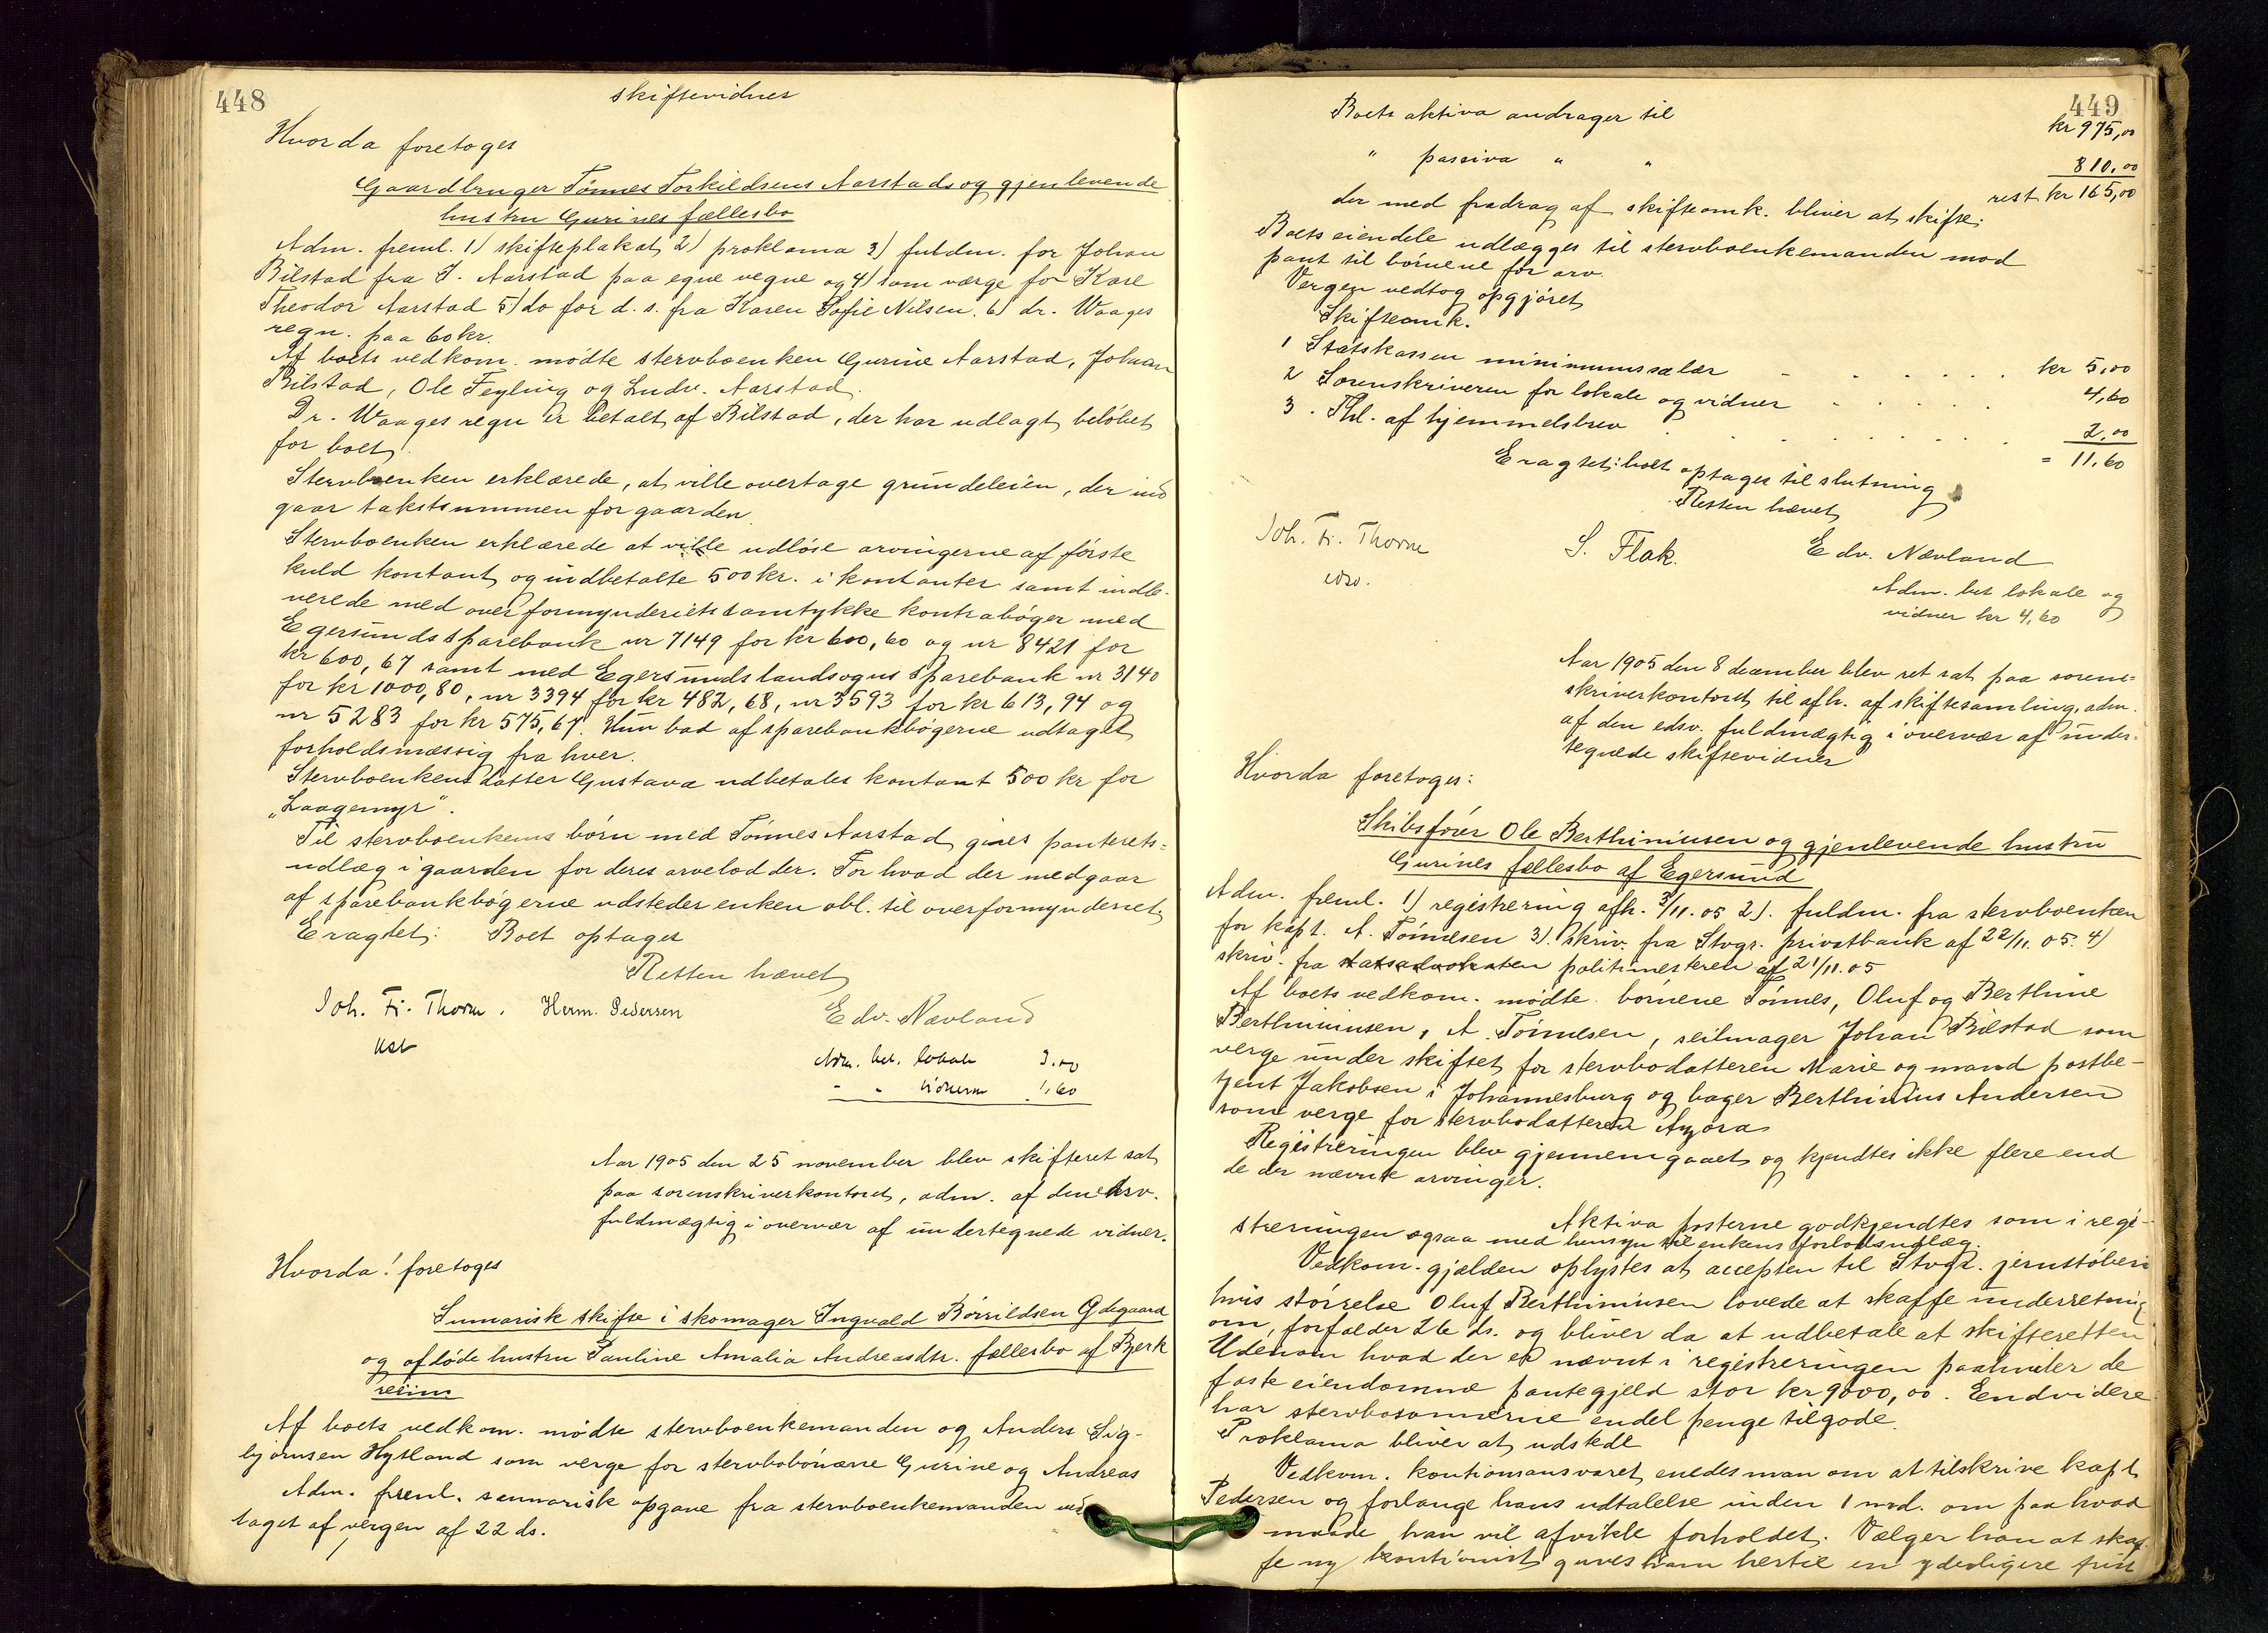 448
skiftevidner
Hvorda foretoges
Gaardbruger Tønnes Torkildsens Aarstads og gjenlevende
hustru Gurines fællesbo
Adm. freml. 1) skifteplakat 2) proklama 3) fuldm. for Johan
Bilstad fra I. Aarstad paa egne vegne og 4) som værge for Karl
Theodor Aarstad 5) do for d. s. fra Karen Sofie Nilsen. 6) dr. Waages
regn. paa 60 kr.
Af boets vedkom. mødte stervboenken Gurine Aarstad, Johan
Bilstad, Ole Feyling og Ludv. Aarstad.
Dr. Waages regn er betalt af Bilstad, der har udlagt beløbet
for boet.
Stervboenken erklærede, at ville overtage grundeleien, der ind
gaar takstsummen for gaarden.
Stervboenken erklærede at ville udløse arvingerne af første
kuld kontant og indbetalte 500 kr. i kontanter samt indle-
verede med overformynderiets samtykke kontrabøger med
Egersunds sparebank nr 7149 for kr 600,60 og nr 8421 for
kr 600,67 samt med Egersunds landsogns sparebank nr 3140
for kr 1000,80, nr 3394 for kr 482,68, nr 3593 for kr 613,94 og
nr 5283 for kr 575,67. Hun bad af sparebankbøgerne udtaget
forholdsmæssig fra hver.
Stervboenkens datter Gustava udbetales kontant 500 kr for
"Laagemyr".
Til stervboenkens børn med Tønnes Aarstad gives panterets=
udlæg i gaarden for deres arvelodder. For hvad der medgaar
af sparebankbøgerne udsteder enken obl. til overformynderiet
Eragtet: Boet optages
Retten hævet
Joh. Fr. Thorne. Herm. Pedersen Edv. Nævland
Adm. bet. lokale 3.00
" " vidnerne 1,60
Aar 1905 den 25 november blev skifteret sat
paa sorenskriverkontoret, adm. af den edsv.
fuldmægtig i overvær af undertegnede vidner.
Hvorda! foretoges
Summarisk skifte i skomager Ingvald Børrildsen Ødegaard
og afdøde hustru Pauline Amalia Andreasdtr. fællesbo af Bjerk
reim
Af boets vedkom. mødte stervboenkemanden og Anders Sig-
bjørnsen Hytland som verge for stervbobørnene Gurine og Andreas
Adm. freml. summarisk opgave fra stervboenkemanden ved
taget af vergen af 22 ds.
449
Boets aktiva andrager til kr 975,00
" passiva " " 810,00
rest kr 165,00
der med fradrag af skifteomk. bliver at skifte.
Boets eiendele udlægges til stervboenkemanden mod
pant til børnene for arv.
Vergen vedtog opgjøret
Skifteomk.
1 Statskassen minimumssalær kr 5,00
2 Sorenskriveren for lokale og vidner 4,60
3. Thl. af hjemmelsbrev 2,00
= 11,60
Eragtet: boet optages til slutning
Retten hævet
Joh. Fr. Thorne S. Flak. Edv. Nævland
edsv.
Adm. bet lokale og
vidner kr 4,60
Aar 1905 den 8 december blev ret sat paa soren=
skriverkontoret til afh. af skiftesamling, adm.
af den edsv. fuldmægtig i overvær af under-
tegnede skiftevidner
Hvorda foretoges:
Skibsfører Ole Berthiniusen og gjenlevende hustru
Gurines fællesbo af Egersund
Adm. freml. 1) registrering afh. 3/11.05 2). fuldm. fra stervboenken
for kapt. A. Tønnesen 3). skriv. fra Stvgr. privatbank af 22/11.05. 4)
skriv. fra statsadvokaten politimesteren af 21/11.05
Af boets vedkom. mødte børnene Tønnes, Oluf og Berthine
Berthiniusen, A. Tønnesen, seilmager Johan Bilstad som
verge under skiftet for stervbodatteren Marie og mand postbe-
tjent Jakobsen i Johannesburg og bager Berthinius Andersen
som verge for stervbodatteren
Registreringen blev gjennemgaaet og kjendtes ikke flere end
de der nævnte arvinger.
Aktiva posterne godkjendtes som i regi-
streringen ogsaa med hensyn til enkens forlodsudlæg.
Vedkom. gjælden oplystes at accepten til Stvgr. jernstøberi
hvis størrelse Oluf Berthiniusen lovede at skaffe underretning
om, forfalder 26 ds. og bliver da at udbetale at skifteretten
Udenom hvad der er nævnt i registreringen paahviler de
faste eiendomme pantegjeld stor kr 9000,00. Eendvidere
har stervbosønnerne endel penge tilgode.
Proklama bliver at udstede
Vedkom. kautionsansvaret enedes man om at tilskrive kapt.
Pedersen og forlange hans udtalelse inden 1 md. om paa hvad
maade han vil afvikle forholdet. Vælger han at skaf
fe ny kautionist gives ham hertil en yderligere frist